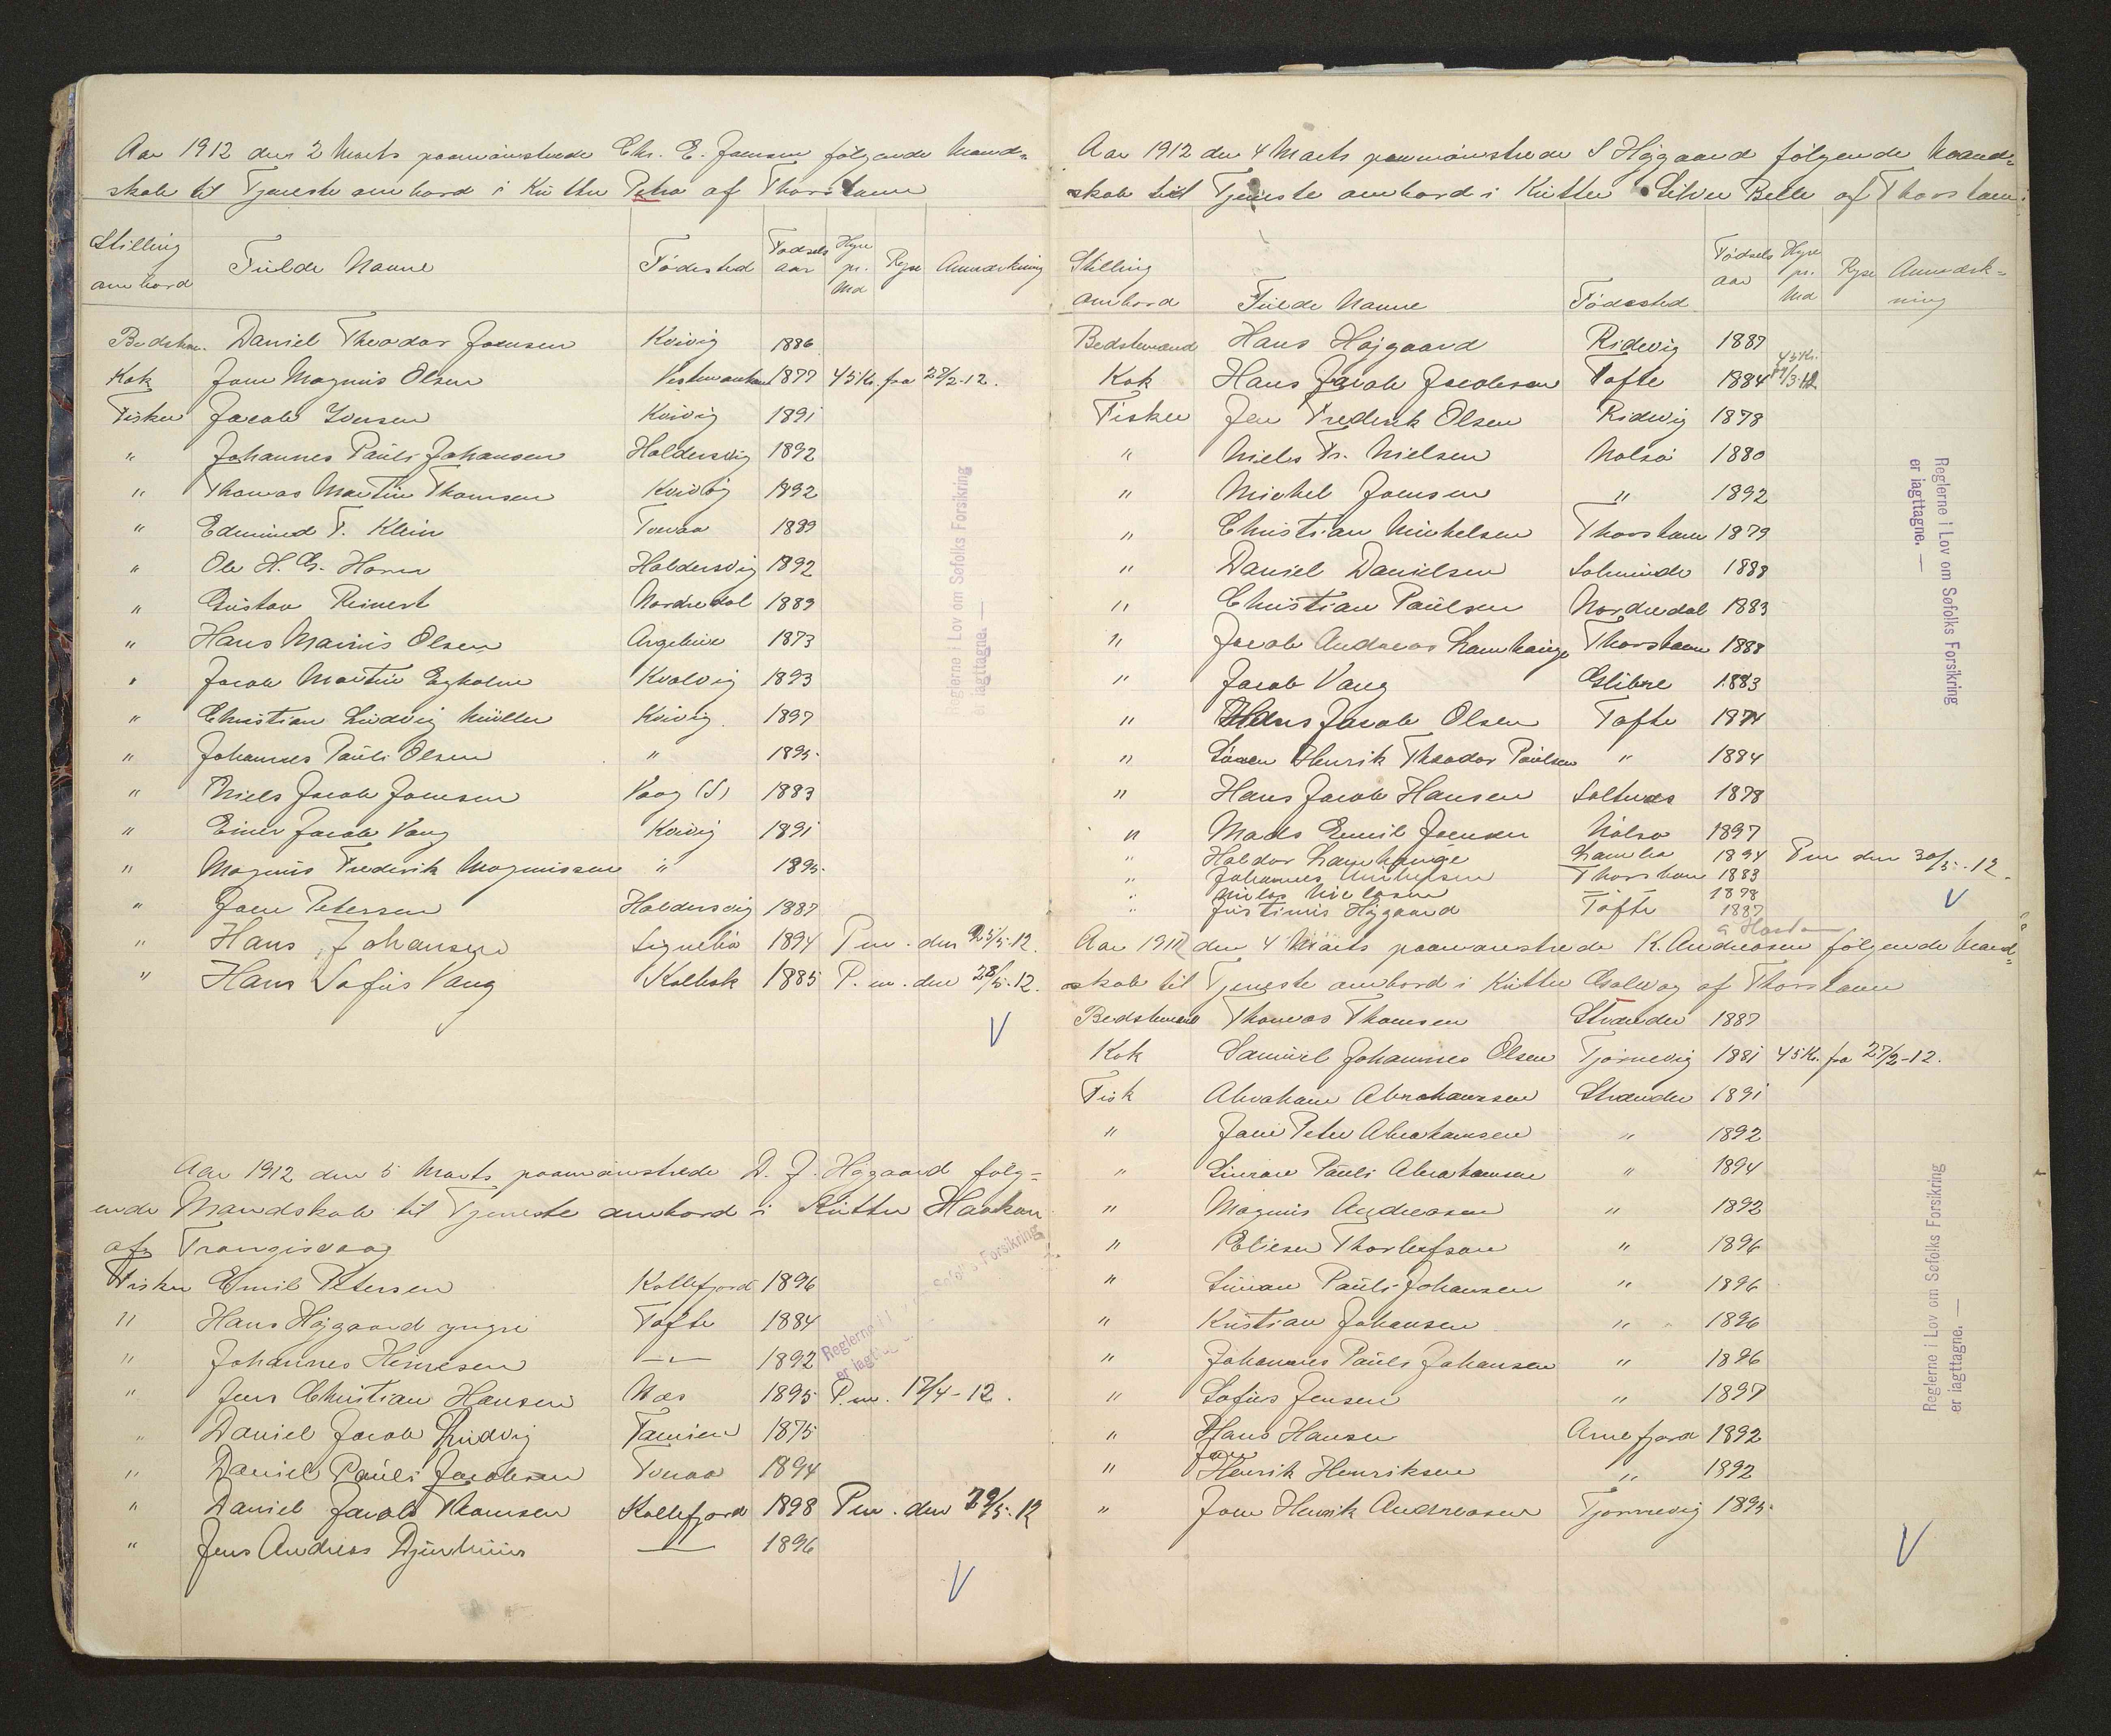 Aar 1912 den 2 Marts paamönstrede Chr. E. Joensen följende Mand-
skab til Tjeneste ombord i Kutter Petra af Thorshavn
Stilling ombord Fulde Navne Födested Födsels aar Hyre pr. Md Rejse Anmærkning
Bedstem. Daniel Theodor Joensen Kvivig 1886
Kok Joen Magnus Olsen Vestmanhavn 1877 45 Kr. fra 27/2-12.
Fisker Jacob Iversen Kvivig 1891
" Johannes Pauli Johansen Haldersvig 1892
" Thomas Martin Thomsen Kvivig 1892
" Edmund F. Klein Tveraa 1889
" Ole H. G. Haldersvig 1892
" Gustav Reinert Nordredal 1889
" Hans Marius Olsen 1873
" Jacob Martin Egholm Kvalvig 1893
" Christian Ludvig Müller Kvivig 1897
" Johannes Pauli Olsen " 1895
" Niels Jacob Joensen Vaag (S) 1883
" Einer Jacob Vang Kvivig 1891
" Magnus Frederik Magnussen " 1895
" Joen Petersen Haldersvig 1887
" Hans Johansen 1894 Pm. den 25/5-12.
" Hans Sofus Vang Kolbek 1885 P.m. den 28/5-12.
V
Aar 1912 den 5 Marts paamönstrede D. J. Höjgaard fölg-
ende Mandskab til Tjeneste ombord i Kutter Haakon
af Trangisvaag
Fisker Emil Petersen Kollefjord 1896
" Hans Höjgaard yngre Tofte 1884
" Johannes Heinesen —"— 1892
" Jens Christian Hansen Næs 1895 P.m. 17/4-12.
" Daniel Jacob Ludvig Famien 1875
" Daniel Pauli Jacobsen Tveraa 1894
" Daniel Jacob Thomsen Kollefjord 1898 Pm. den 29/5-12
" Jens Andreas Djurhuus —"— 1896
V
Reglerne i Lov om Søfolks Forsikring
er iagttagne. —
Reglerne i Lov om Søfolks Forsikring
er iagttagne.
Aar 1912 den 4 Marts paamönstrede S Höjgaard følgende Mand-
skab til Tjeneste ombord i Kutter Silver Belle af Thorshavn
Stilling ombord Fulde Navne Födested Födsels aar Hyre pr. Md Rejse Anmærk-
ning
Bedstemand Hans Höjgaard Ridevig 1887
Kok Hans Jacob Jacobsen Tofte 1884 45 Kr. 11/3-12
Fisker Jen Frederik Olsen Ridevig 1878
" Niels Fr. Nielsen Nolsö 1880
" Michel Joensen " 1892
" Christian Michelsen Thorshavn 1879
" Daniel Danielsen Solmunde 1888
" Christian Paulsen Nordredal 1883
" Jacob Andreas Lamhauge Thorshavn 1888
" Jacob Vang Glibre 1883
" Hans Jacob Olsen Tofte 1874
" Sören Henrik Theodor Poulsen " 1884
" Hans Jacob Hansen Saltnæs 1878
" Mads Emil Joensen Nolsö 1897
" Haldor Lamhauge Lamba 1894 Pm den 30/5-12.
" Johannes Michelsen Thorshavn 1883
" Niels Nielsen 1878 V
" Justinus Höjgaard Tofte 1887
Aar 1912 den 4 Marts paamönstrede K. Andreasen följende Mand-
skab til Tjeneste ombord i Kutter Galway af Thorshavn
Bedstemand Thomas Thomsen Strænder 1887
Kok Samuel Johannes Olsen Tjörnevig 1881 45 Kr. fra 27/2-12.
Fisk Abraham Abrahamsen Strænder 1891
" Joen Peter Abrahamsen " 1892
" Simon Pauli Abrahamsen " 1894
" Magnus Andreasen " 1892
" Elieser Thorleifson " 1896
" Simon Pauli Johansen " 1896
" Kristian Johansen " 1896
" Johannes Pauli Johansen " 1896
" Sofus Jensen " 1897
" Hans Hansen Arnefjord 1892
" Joen Henrik Henriksen " 1892
" Joen Henrik Andreasen Tjörnevig 1895
V
Reglerne i Lov om Søfolks Forsikring
er iagttagne. —
Reglerne i Lov om Søfolks Forsikring
er iagttagne. —